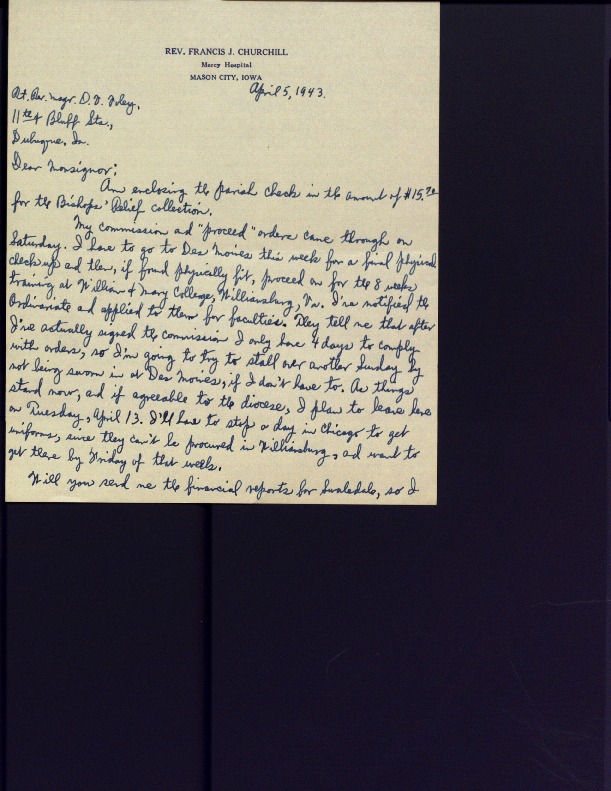 REV. FRANCIS J. CHURCHILL
Mercy Hospital
MASON CITY, IOWA
April 5, 1943.
Rt. Rev. Msgr. D. V. Foley,
11th & Bluff Sts.,
Dubuque, Ia.
Dear Monsignor:
Am enclosing the parish check in the amount of $15.70
for the Bishops' Relief collection.
My commission ad "proceed" orders came through on
Saturday. I have to go to Des Moines this week for a final physical
check-up ad then, if found physically fit, proceed on for the 8 weeks
training at William & Mary College, Williamsburg, Va. I've notified the
Ordinariate ad applied to them for faculties. They tell me that after
I've actually signed the commission I only have 4 days to comply
with orders, so I'm going to try to stall over another Sunday by
not being sworn in at Des Moines, if I don't have to. As things
stand now, and if agreeable to the diocese, I plan to leave here
on Tuesday, April 13. I'll have to stop a day in Chicago to get
uniforms, since they can't be procured in Williamsburg, ad want to
get there by Friday of that week.
Will you send me the financial reports for Swaledale, so I